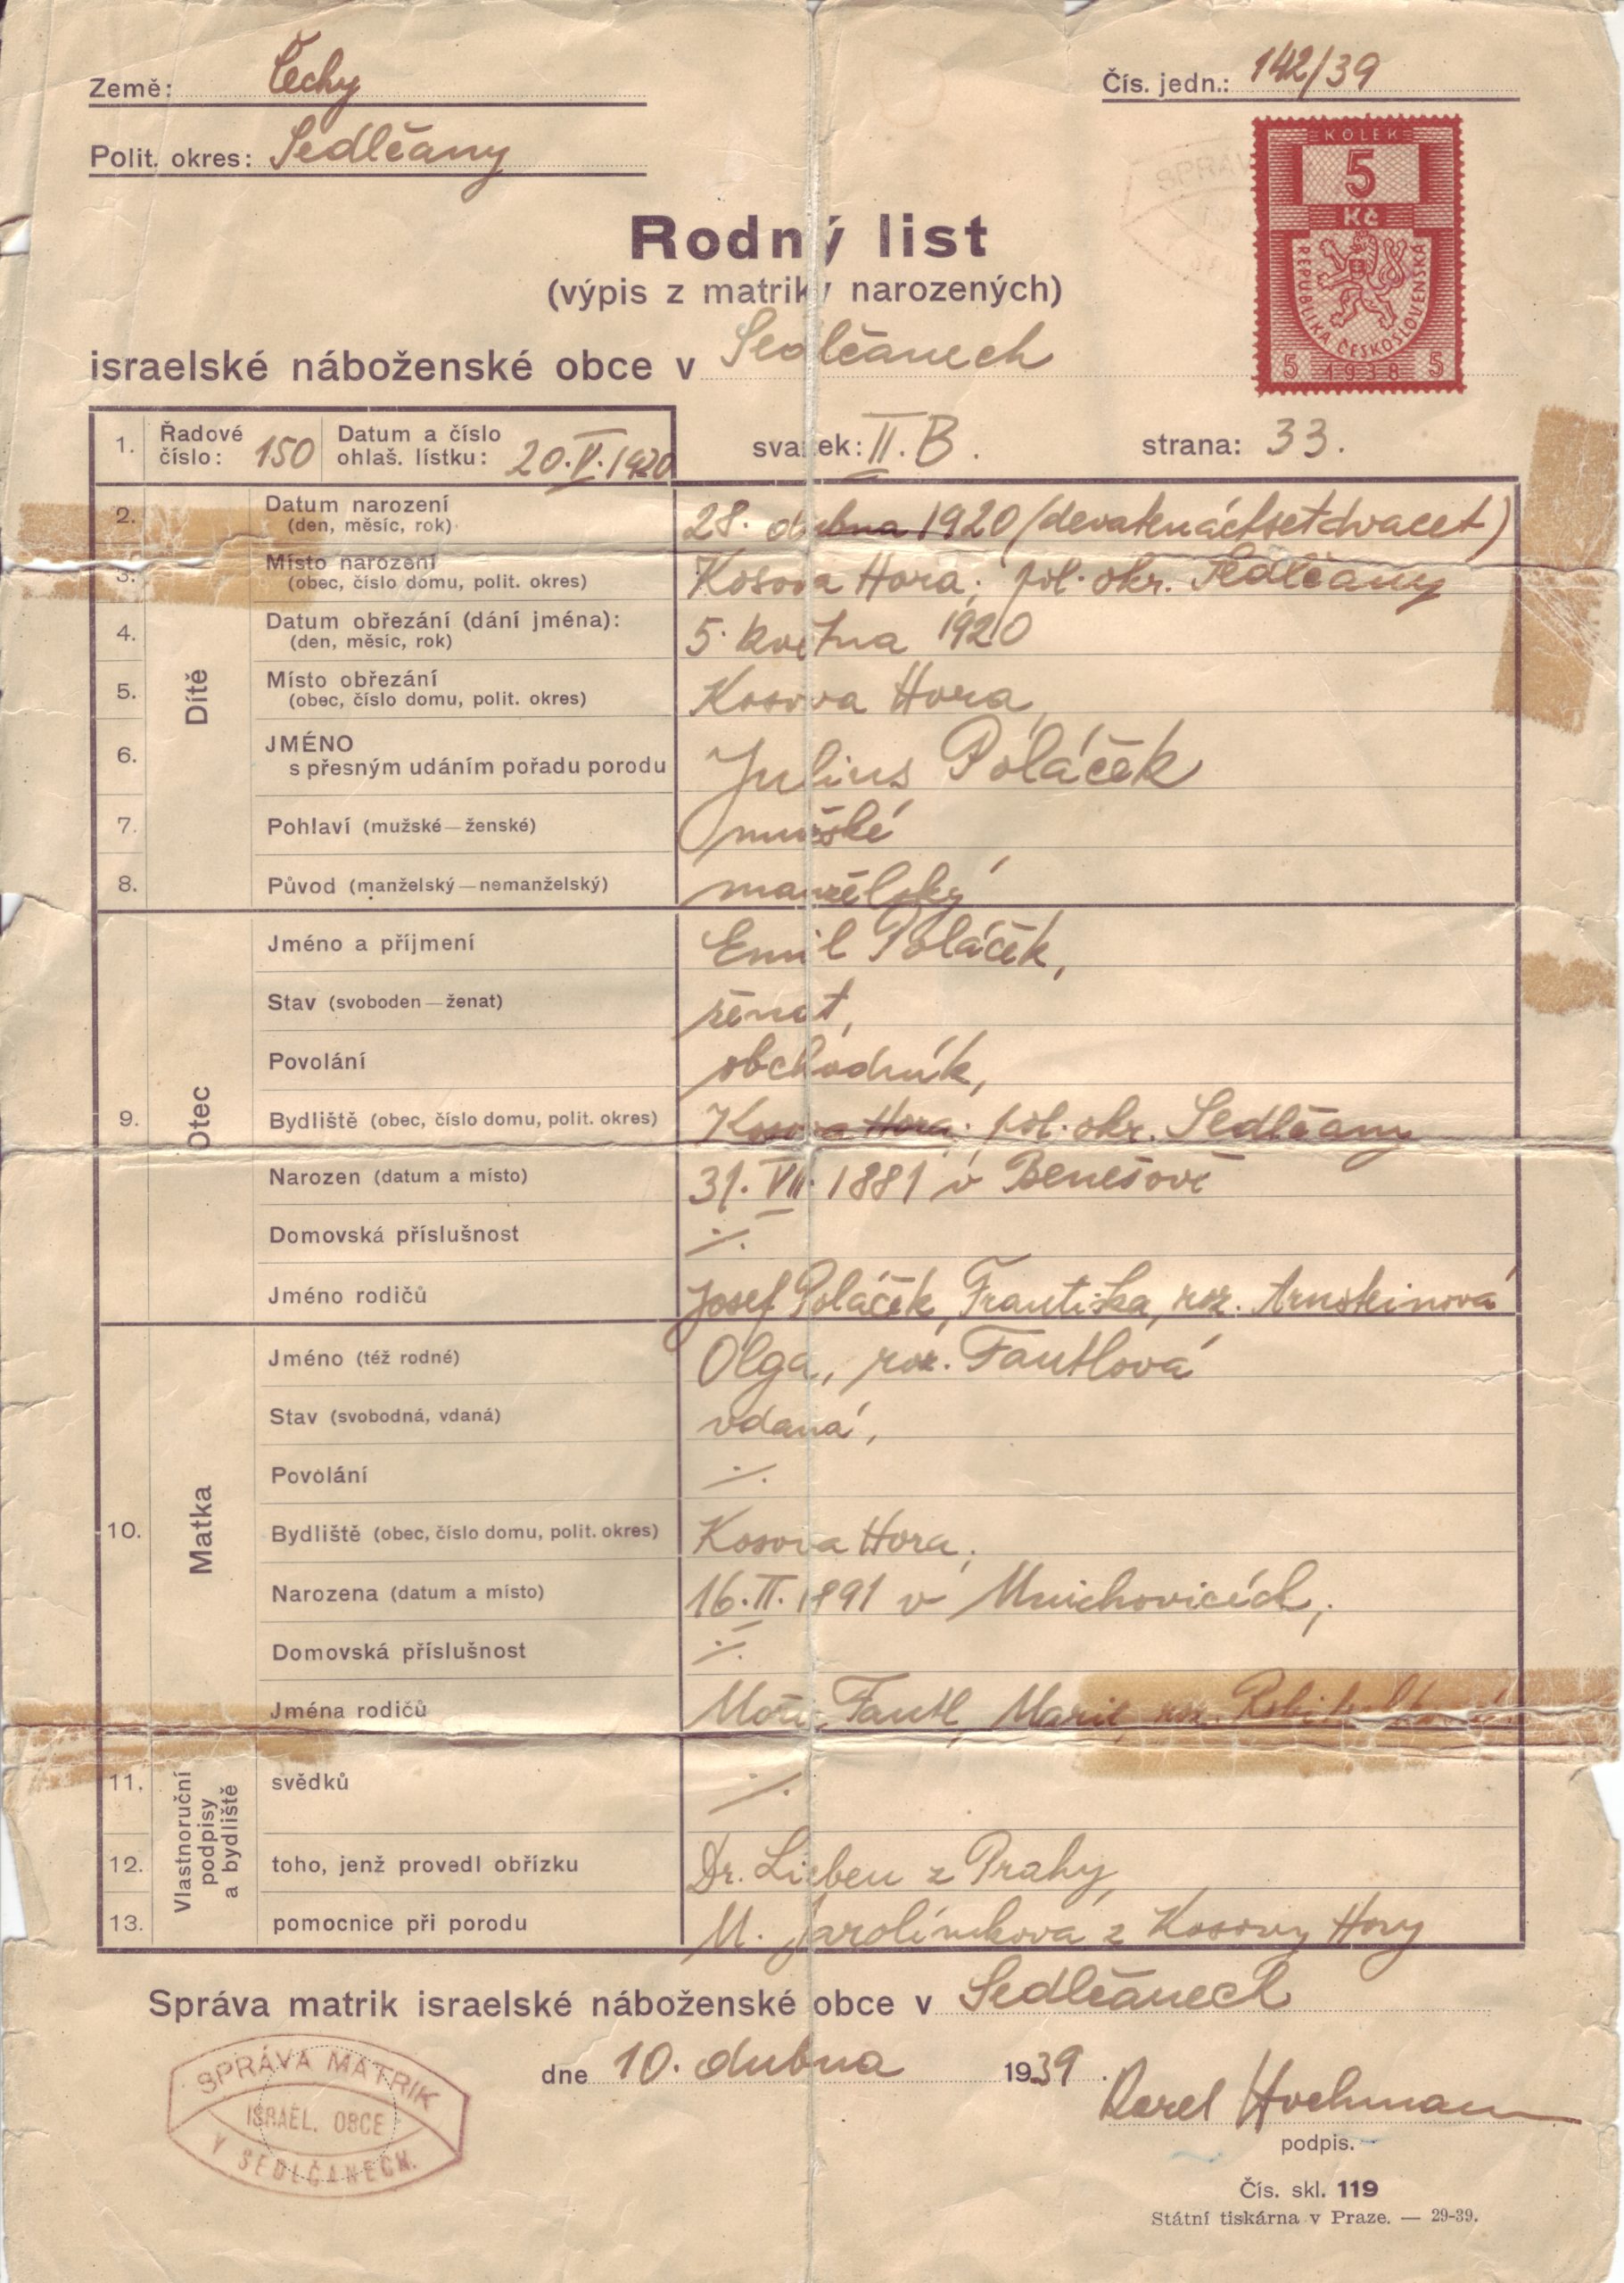 Země: Čechy
Čís. jedn.: 142/39
Polit. okres: Sedlčany
KOLEK
5
Kč
REPUBLIKA ČESKOSLOVENSKÁ
5 1938 5
Rodný list
(výpis z matriky narozených)
israelské náboženské obce v Sedlčanech
1. Řadové číslo: 150 Datum a číslo ohlaš. lístku: 20.V.1920 svazek: II.B. strana: 33.
Dítě
2. Datum narození (den, měsíc, rok) 28. dubna 1920 (devatenáctsetdvacet)
3. Místo narození (obec, číslo domu, polit. okres) Kosova Hora; pol. okr. Sedlčany
4. Datum obřezání (dání jména): (den, měsíc, rok) 5. května 1920
5. Místo obřezání (obec, číslo domu, polit. okres) Kosova Hora
6. JMÉNO s přesným udáním pořadu porodu Julius Poláček
7. Pohlaví (mužské—ženské) mužské
8. Původ (manželský—nemanželský) manželský
9. Otec
Jméno a příjmení Emil Poláček,
Stav (svoboden—ženat) ženat,
Povolání obchodník,
Bydliště (obec, číslo domu, polit. okres) Kosova Hora; pol. okr. Sedlčany
Narozen (datum a místo) 31. VII. 1881 v Benešově
Domovská příslušnost ·/.
Jméno rodičů Josef Poláček, Františka, roz. Arnsteinová
10. Matka
Jméno (též rodné) Olga, roz. Fantlová
Stav (svobodná, vdaná) vdaná,
Povolání ·/.
Bydliště (obec, číslo domu, polit. okres) Kosova Hora;
Narozena (datum a místo) 16.II.1891 v Mnichovicích;
Domovská příslušnost ·/.
Jména rodičů Moric Fantl, Marie, roz.
Vlastnoruční podpisy a bydliště
11. svědků ·/.
12. toho, jenž provedl obřízku Dr. Lieben z Prahy
13. pomocnice při porodu M. Jarolímkova z Kosovy Hory
Správa matrik israelské náboženské obce v Sedlčanech
dne 10. dubna 1939.
Karel Hochmann
podpis.
SPRÁVA MATRIK
ISRAEL. OBCE
V SEDLČANECH.
Čís. skl. 119
Státní tiskárna v Praze. — 29-39.